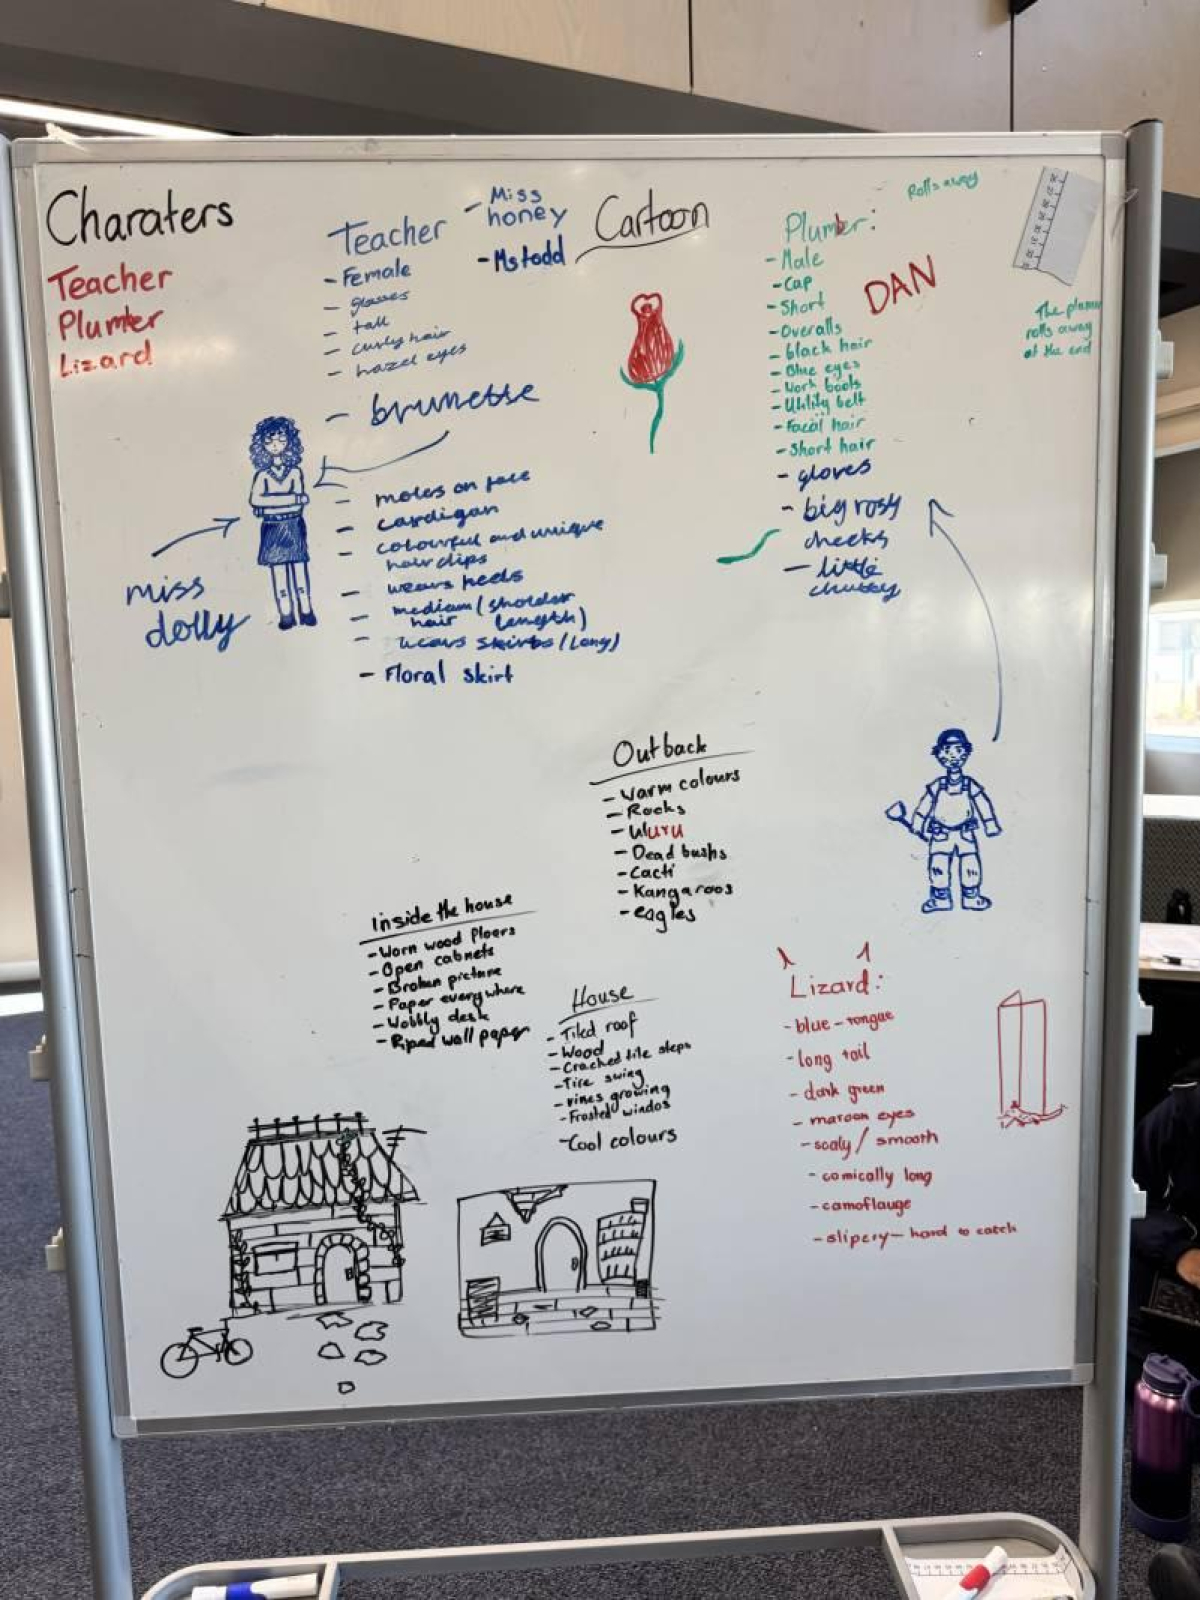 Charaters
Teacher
Plumter
Lizard
Teacher
- Miss
honey
- Ms todd
- Female
- glasses
- tall
- curly hair
- hazel eyes
- brunette
- moles on face
- cardigan
- colourful and unique
hair clips
- wears heels
- medium (sholder
hair length)
- wears skirts (Long)
- Floral skirt
miss
dolly
Cartoon
Plumber:
- Male
- Cap
- Short
- Overalls
- black hair
- Blue eyes
- Work boots
- Utility belt
- Facial hair
- Short hair
- gloves
- big rosy
cheeks
- little
chubby
DAN
Rolls away
rolls away
at the end
Outback
- Warm colours
- Rocks
- Uluru
- Dead bushs
- Cacti
- Kangaroos
- eagles
Inside the house
- Worn wood floors
- Open cabnets
- Broken picture
- Paper everywhere
- Wobbly desk
- Riped wall paper
House
- Tiled roof
- Wood
- Cracked tile steps
- Tire swing
- vines growing
- Frosted windos
- Cool colours
Lizard:
- blue-tongue
- long tail
- dark green
- maroon eyes
- scaly / smooth
- comically long
- camoflauge
- slipery - hard to catch